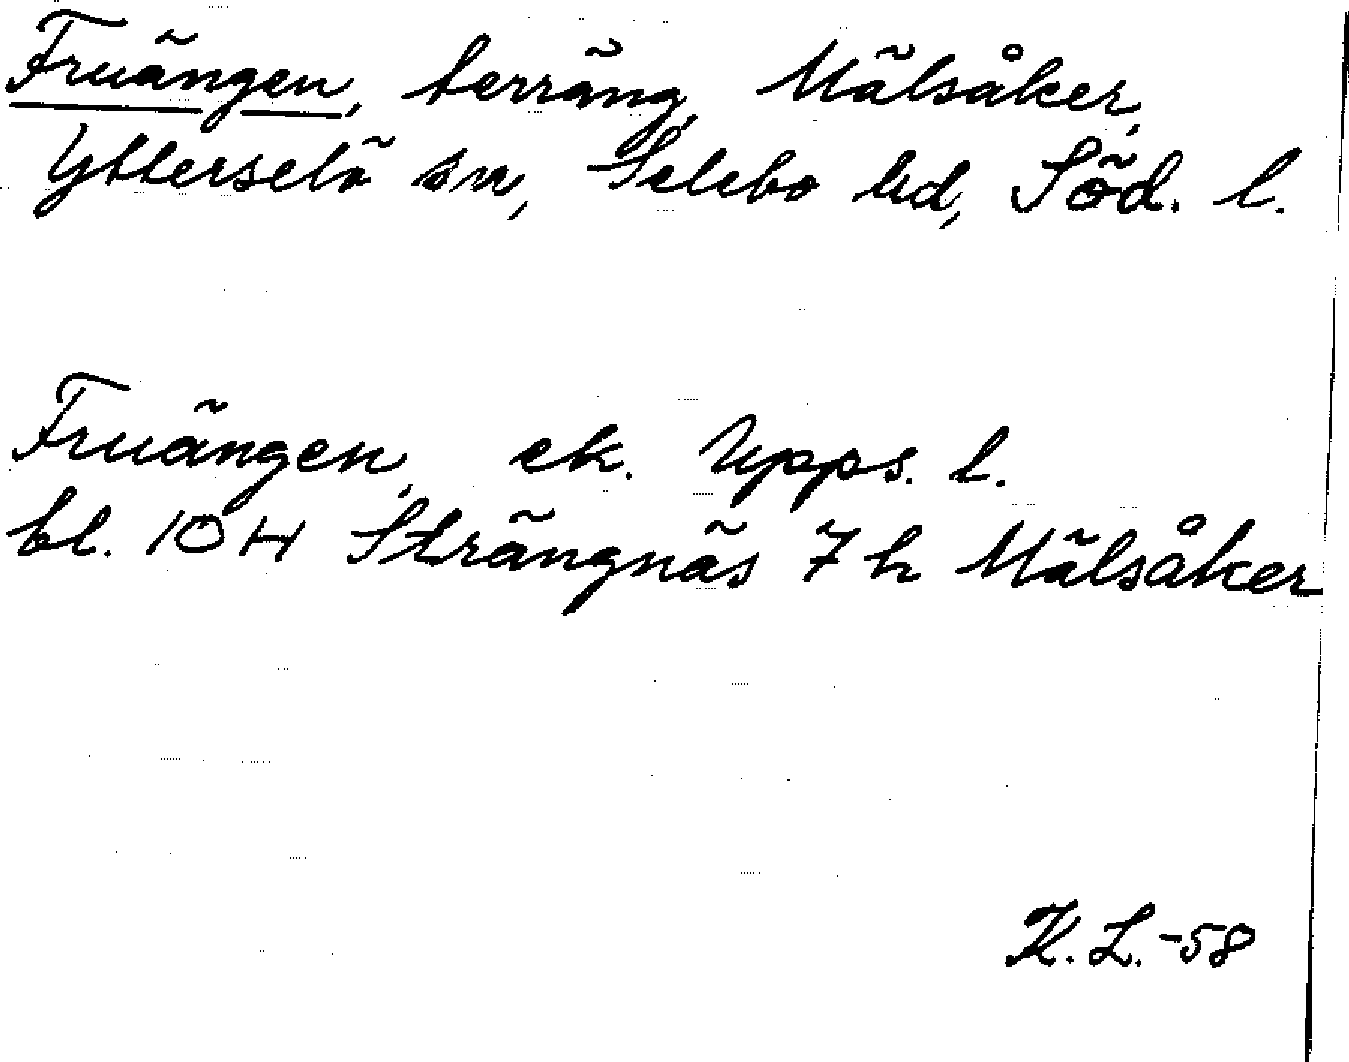 Fruängen, terräng, Mälsåker,
Ytterselö sn, Selebo hd, Söd. l.
Fruängen, ek. Upps. l.
bl. 10 H Strängnäs 7 h Mälsåker
K. L. -58